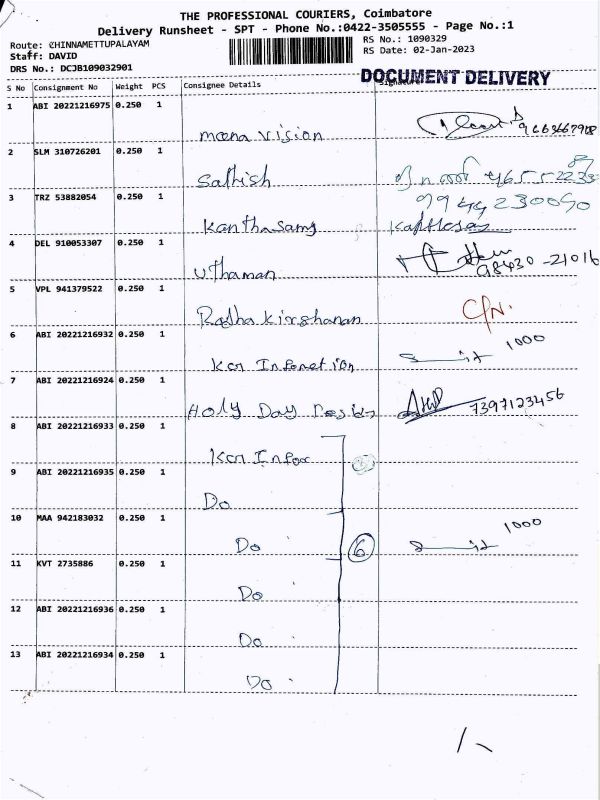 THE PROFESSIONAL COURIERS, Coimbatore
Delivery Runsheet - SPT - Phone No.:0422-3505555 - Page No.:1
Route: CHINNAMETTUPALAYAM
Staff: DAVID
DRS No.: DCJB109032901
RS No.: 1090329
RS Date: 02-Jan-2023
DOCUMENT DELIVERY
S No Consignment No Weight PCS Consignee Details Signature
1 ABI 20221216975 0.250 1
meena vision
2 SLM 310726201 0.250 1
Sathish
3 TRZ 53882054 0.250 1
99442 30090
Kanthasamy
4 DEL 910053307 0.250 1
Uthaman 98430-21016
5 VPL 941379522 0.250 1
Radha Kirshanan C/N.
6 ABI 20221216932 0.250 1
Kcr Infometion 1000
7 ABI 20221216924 0.250 1
Holy Day Resin 7397123456
8 ABI 20221216933 0.250 1
Kcr Infor
9 ABI 20221216935 0.250 1
Do
10 MAA 942183032 0.250 1
Do 6 1000
11 KVT 2735886 0.250 1
Do
12 ABI 20221216936 0.250 1
Do
13 ABI 20221216934 0.250 1
Do